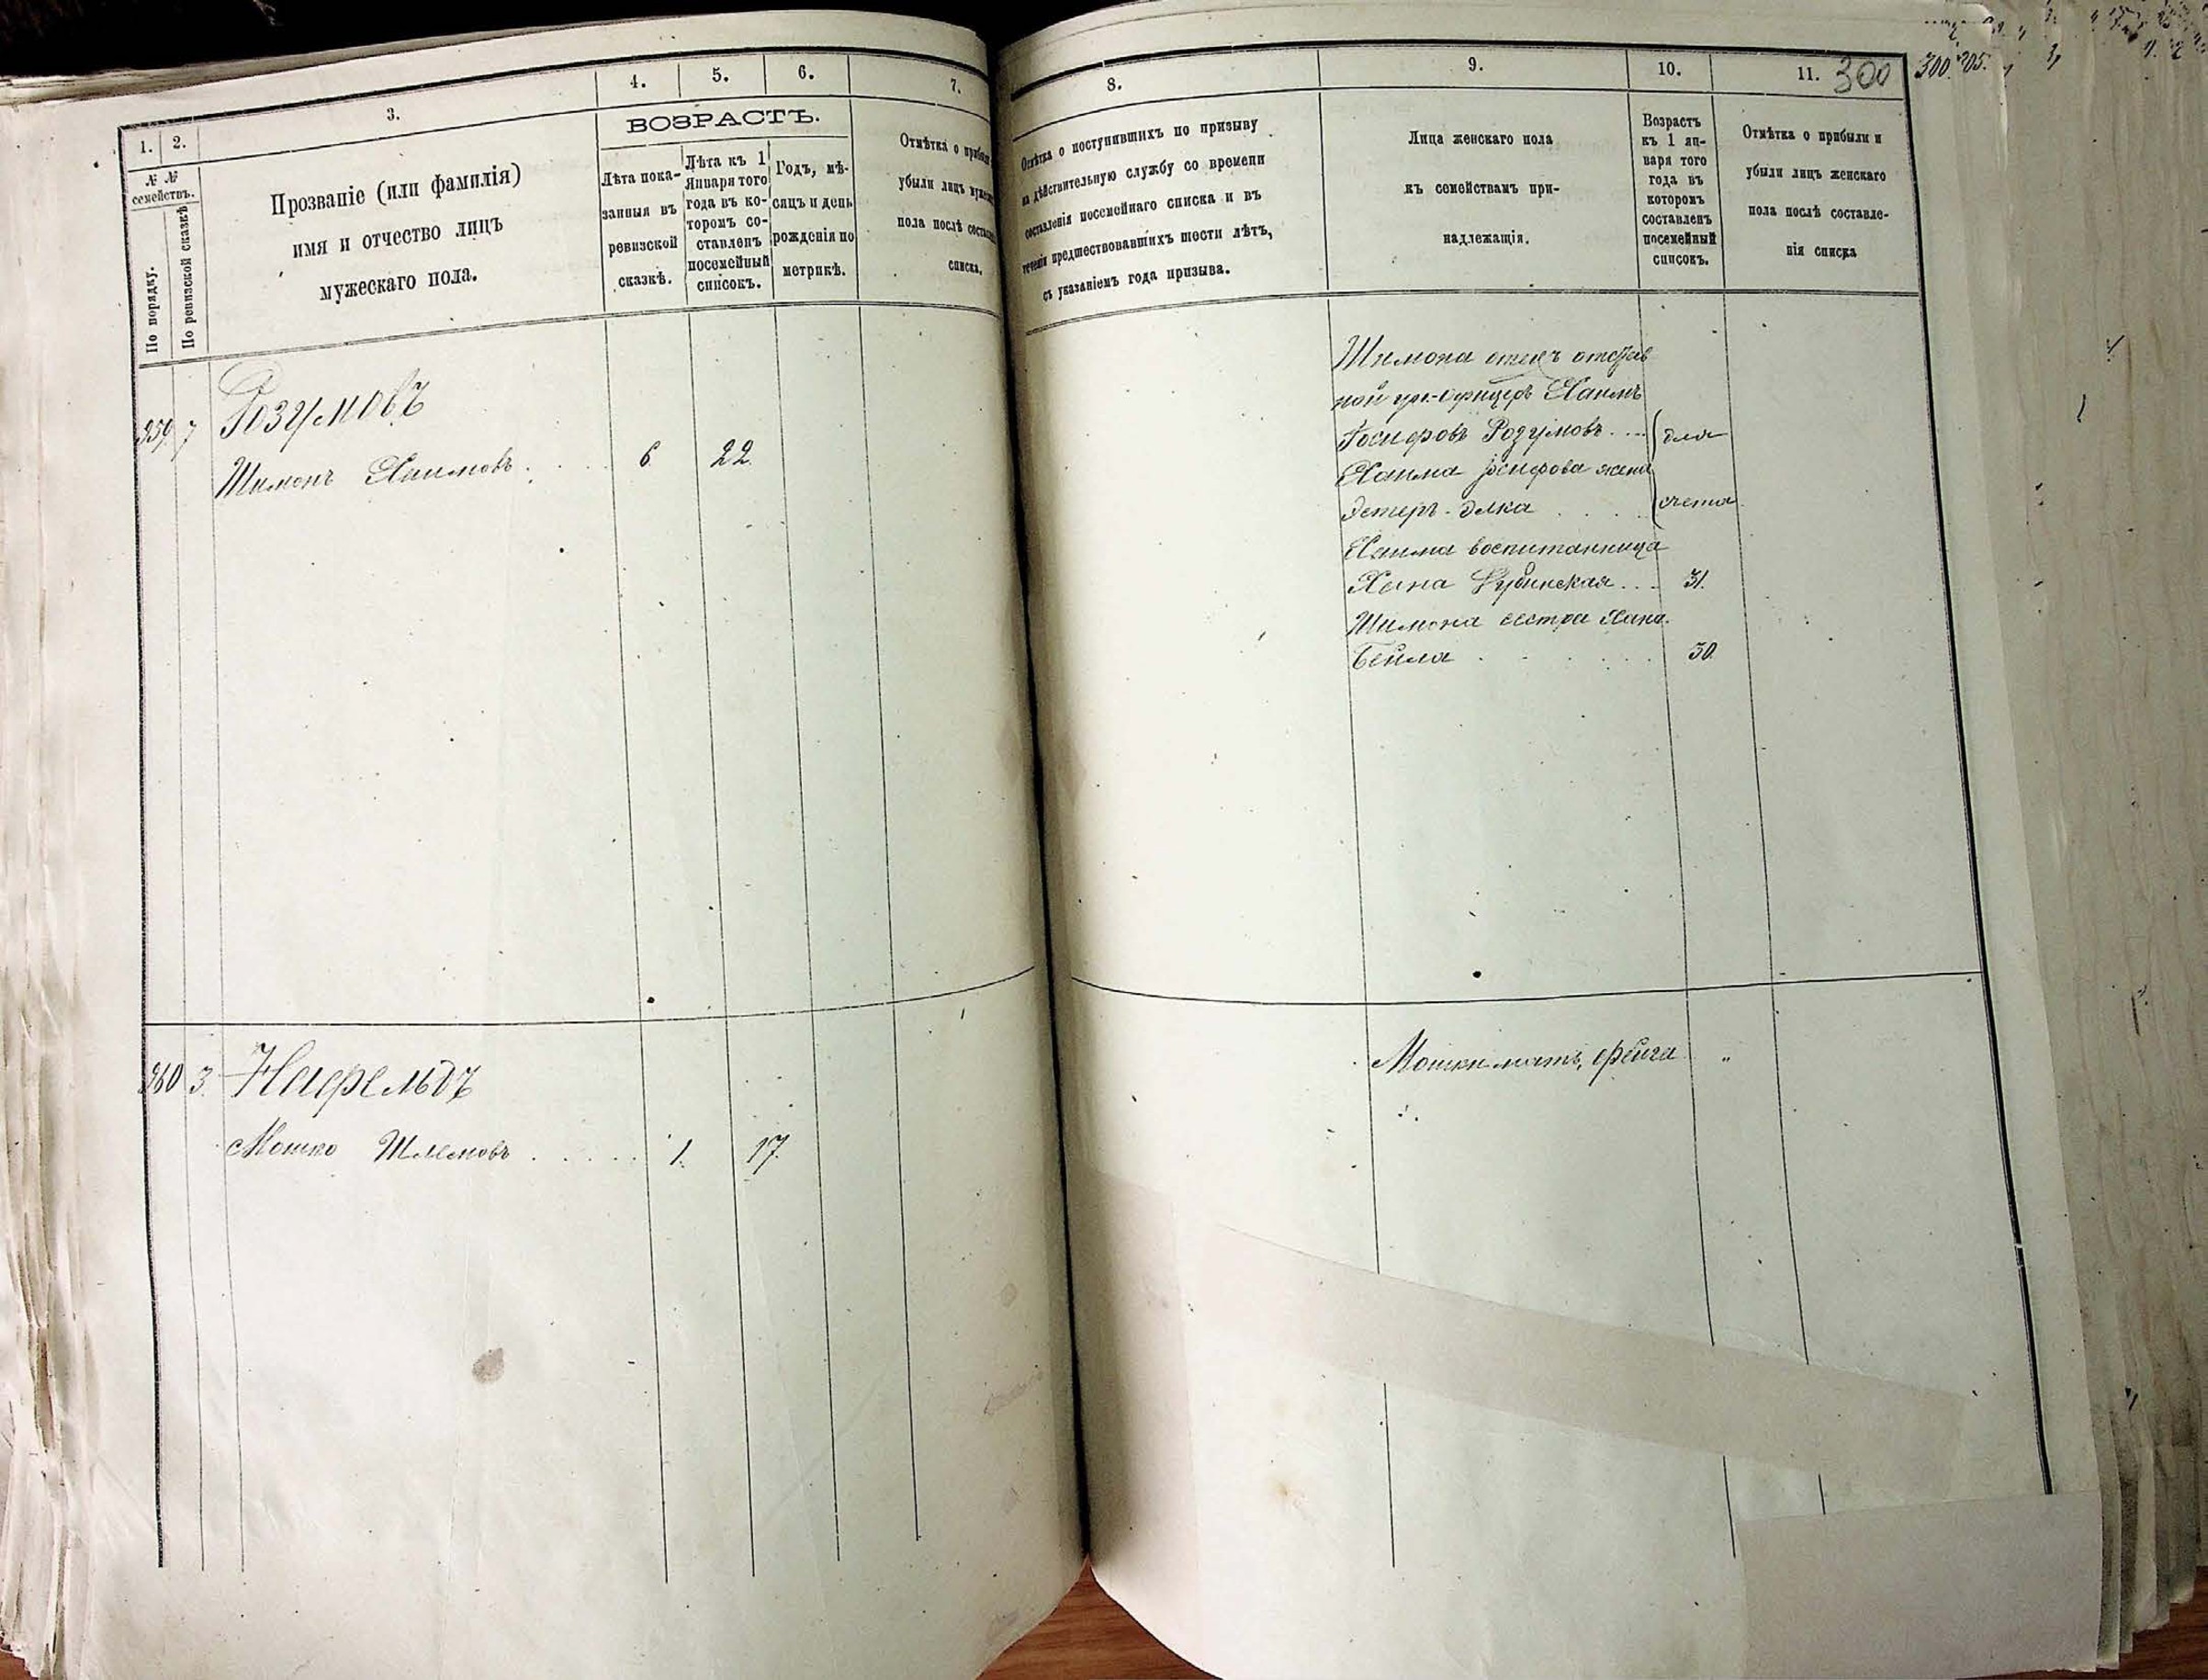 1.
2.
3.
4.
5.
6.
7.
№ №
семействъ.
По порядку.
По ревизской сказкѣ
Прозваніе (или фамилія)
имя и отчество лицъ
мужескаго пола.
ВОЗРАСТЪ.
Лѣта пока-
занныя въ
ревизской
сказкѣ.
Лѣта къ 1
Января того
года въ ко-
торомъ со-
ставленъ
посемейный
списокъ.
Годъ, мѣ-
сяцъ и день
рожденія по
метрикѣ.
Отмѣтка о
убыли лицъ
пола послѣ
списка.
359 7 Розумовъ
Шимонъ Хаимовъ 6 22
360 3. Нафельдъ
Мошко Шлемовъ 1. 17.
8.
9.
10.
11. 300
300. 305.
Отмѣтка о поступившихъ по призыву
на дѣйствительную службу со времени
составленія посемейнаго списка и въ
теченіи предшествовавшихъ шести лѣтъ,
съ указаніемъ года призыва.
Лица женскаго пола
къ семействамъ при-
надлежащія.
Возрастъ
къ 1 ян-
варя того
года въ
которомъ
составленъ
посемейный
списокъ.
Отмѣтка о прибыли и
убыли лицъ женскаго
пола послѣ составле-
нія списка
Шимона отецъ отстав
ной ун.-офицеръ Хаимъ
Іосифовъ Розумовъ .... для
Хаима Іосифова жена
Эстеръ-Элка счета
Хаима воспитанница
Хана Рубинская ... 31.
Шимона сестра Хана.
Бейла 30
Мошки мать, Фейга "